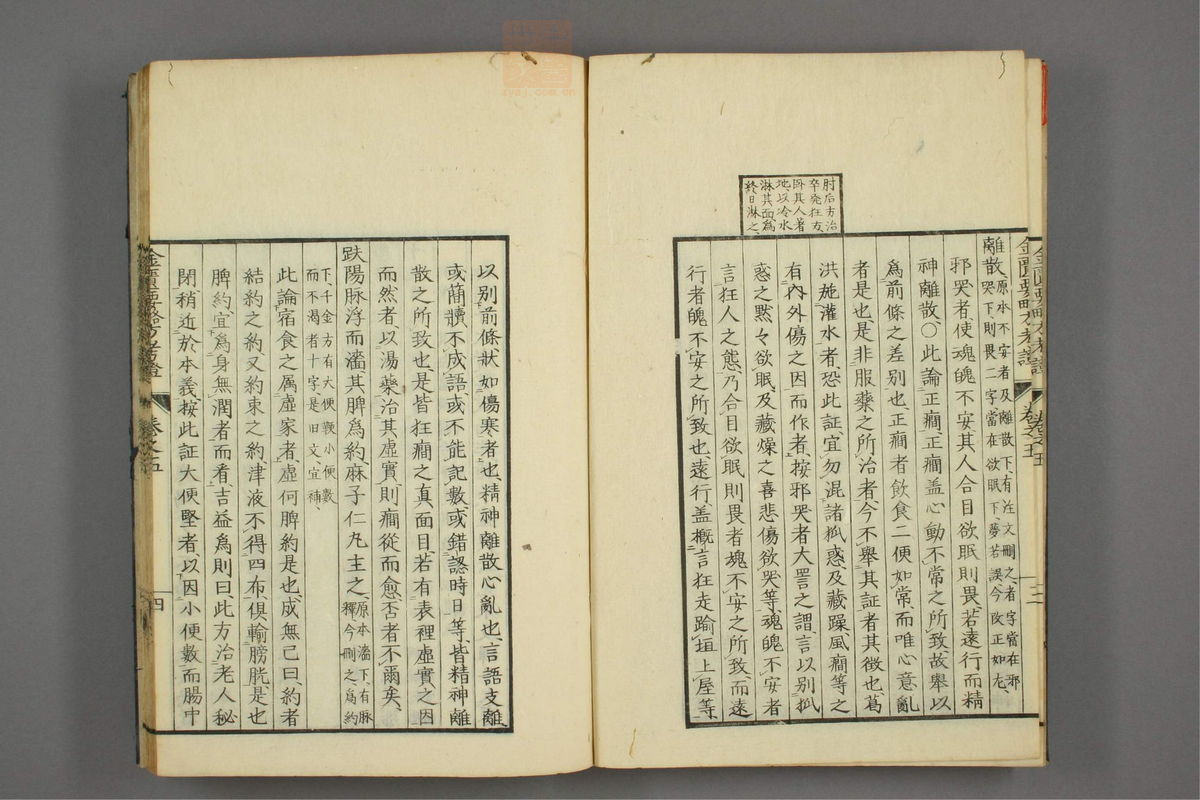 金匱要略方考證
卷之五
肘后方治
卒発狂方
臥其人著
地以冷水
淋其面為
終日淋之
離散、原本不安者及離散下、有注文刪之、者字當在邪
哭下、則畏二字當在欲眠下、夢若誤、今改正如左、
邪哭者、使魂魄不安、其人合目欲眠則畏、若遠行而精
神離散、〇此論正癎、正癎盖心動不常之所致、故舉以
爲前條之差別也、正癎者飲食二便如常、而唯心意亂
者是也、是非服藥之所治者、今不舉其証者其微也、葛
洪施灌水者、恐此証、宜勿混諸狐惑、及藏躁風癎等之
有內外傷之因而作者、按邪哭者大詈之謂、言以別狐
惑之黙々欲眠、及藏燥之喜悲傷欲哭等、魂魄不安者
言狂人之態、乃合目欲眠則畏者魂不安之所致、而遠
行者魄不安之所致也、遠行、盖概言狂走踰垣上屋等
以別前條狀如傷寒者也、精神離散心亂也、言語支離、
或簡牘、不成語、或不能記數、或錯謬時日等、皆精神離
散之所致也、是皆狂癎之真面目、若有表裡虛實之因
而然者、以湯藥治其虛實、則癎從而愈、否者不爾矣、
趺陽脉浮而濇、其脾爲約、麻子仁丸主之、原本濇下、有脉
釋、今刪之、爲約
下、千金方有大便鞕小便數
而不渴者十字、是旧文宜補、
此論宿食之属虛家者、虛何脾約是也、成無己曰、約者
結約之約、又約束之約、津液不得四布、俱輸膀胱、是也
脾約、宜爲身無潤者而看、吉益爲則曰、此方治老人秘
閉、稍近於本義、按此証大便堅者、以因小便數而腸中
金匱要略方考證
卷之五
四